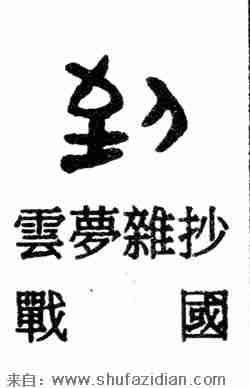 到
雲夢雜抄
戰國
来自：www.shufazidian.com